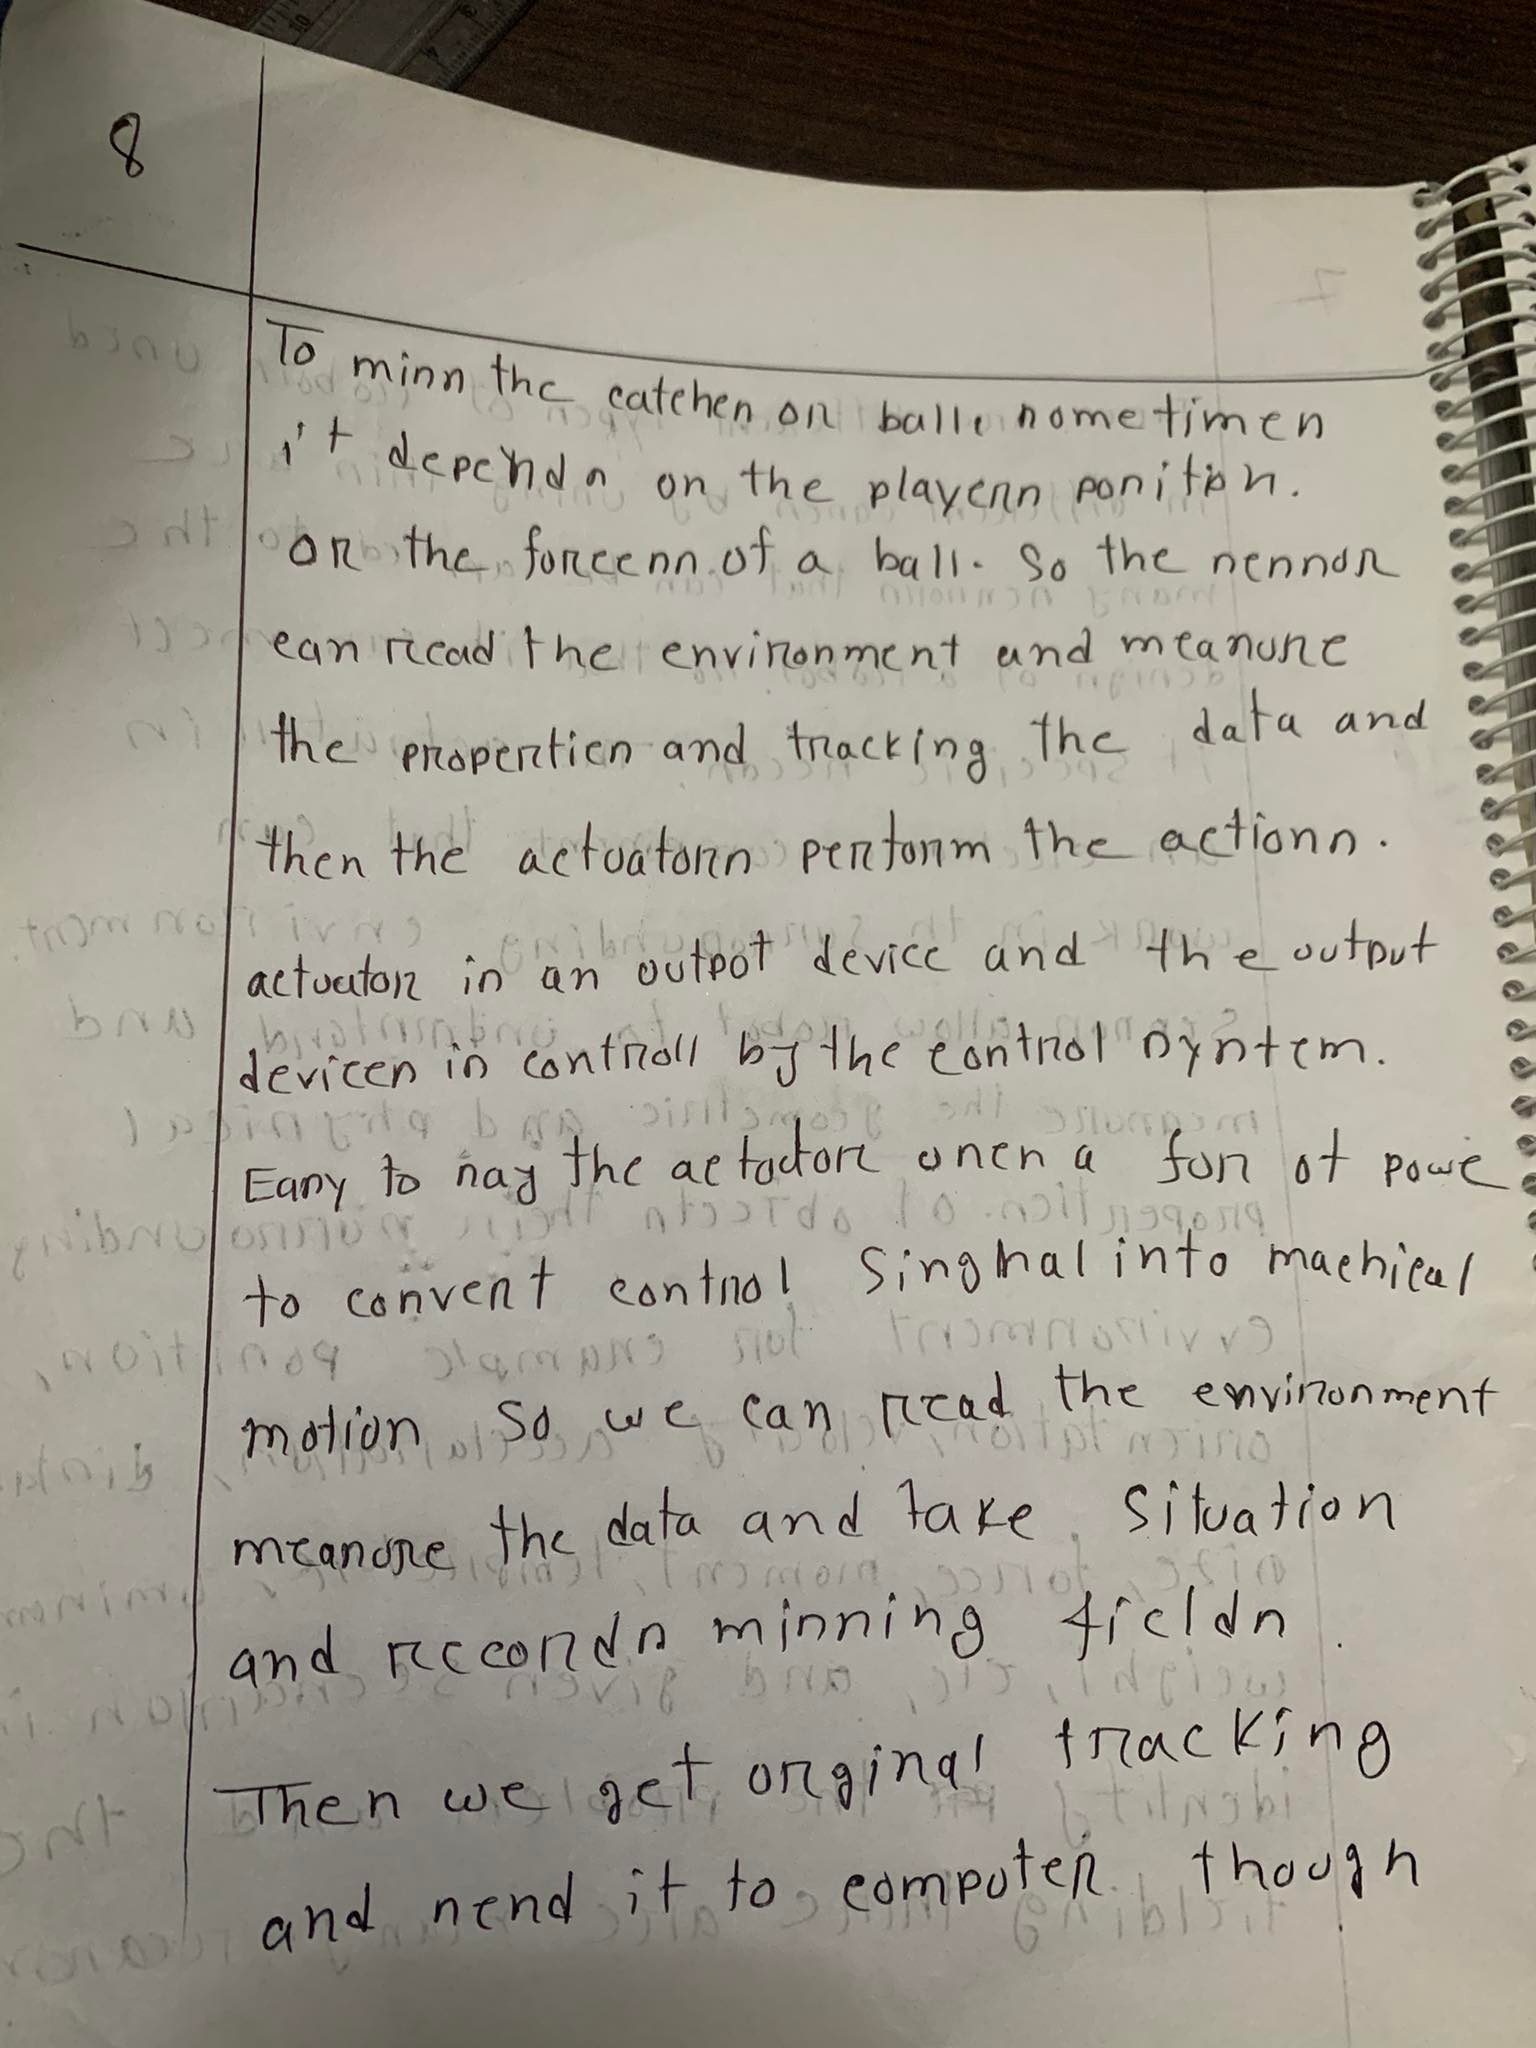 8
To miss the catches or ball sometimes
it depends on the players position.
or the forcess of a ball. So the sensor
can read the environment and measure
the properties and tracking the data and
then the actuators perform the actions.
actuator is an outpot device and the output
devices is controll by the control system.
Easy to say the actoctore uses a for of powe
to convert control Singhal into machical
motion so we can read the environment
measure the data and take situation
and records missing fields.
Then we get orginal tracking
and send it to computer though